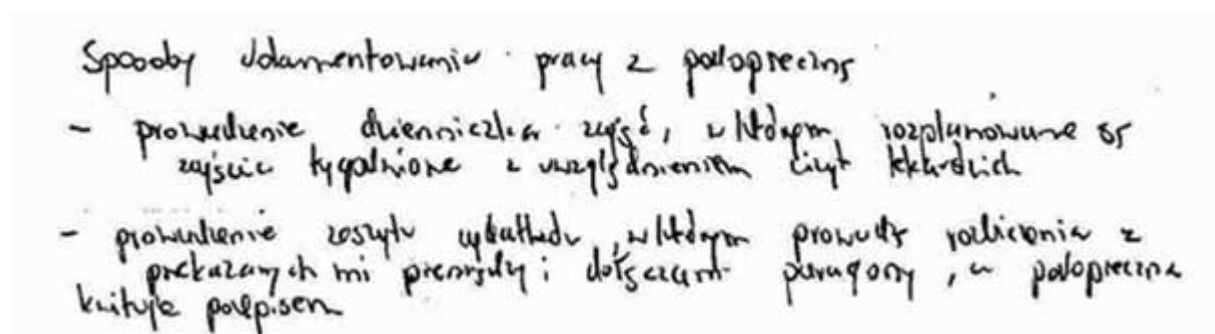 Sposoby dokumentowania pracy z podopieczną
- prowadzenie dzienniczka zajęć, w którym rozplanowane są
zajęcia tygodniowe z uwzględnieniem wizyt lekarskich
- prowadzenie zeszytu wydatków, w którym prowadzę rozliczenia z
przekazanych mi pieniędzy i dołączam paragony, a podopieczna
kwituje podpisem